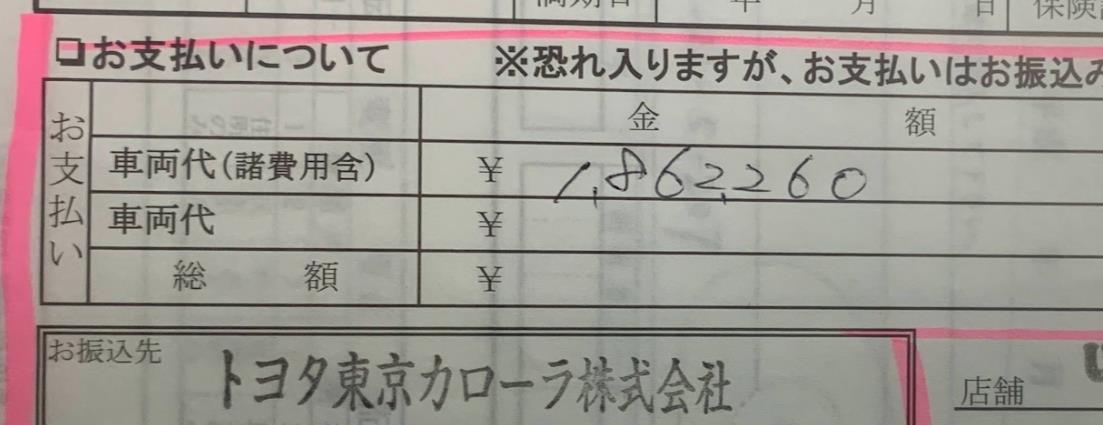 年 月 日 保険
❏お支払いについて ※恐れ入りますが、お支払いはお振込み
お支払い
金 額
車両代(諸費用含) ¥ 1,862,260
車両代 ¥
総 額 ¥
お振込先
トヨタ東京カローラ株式会社
店舗